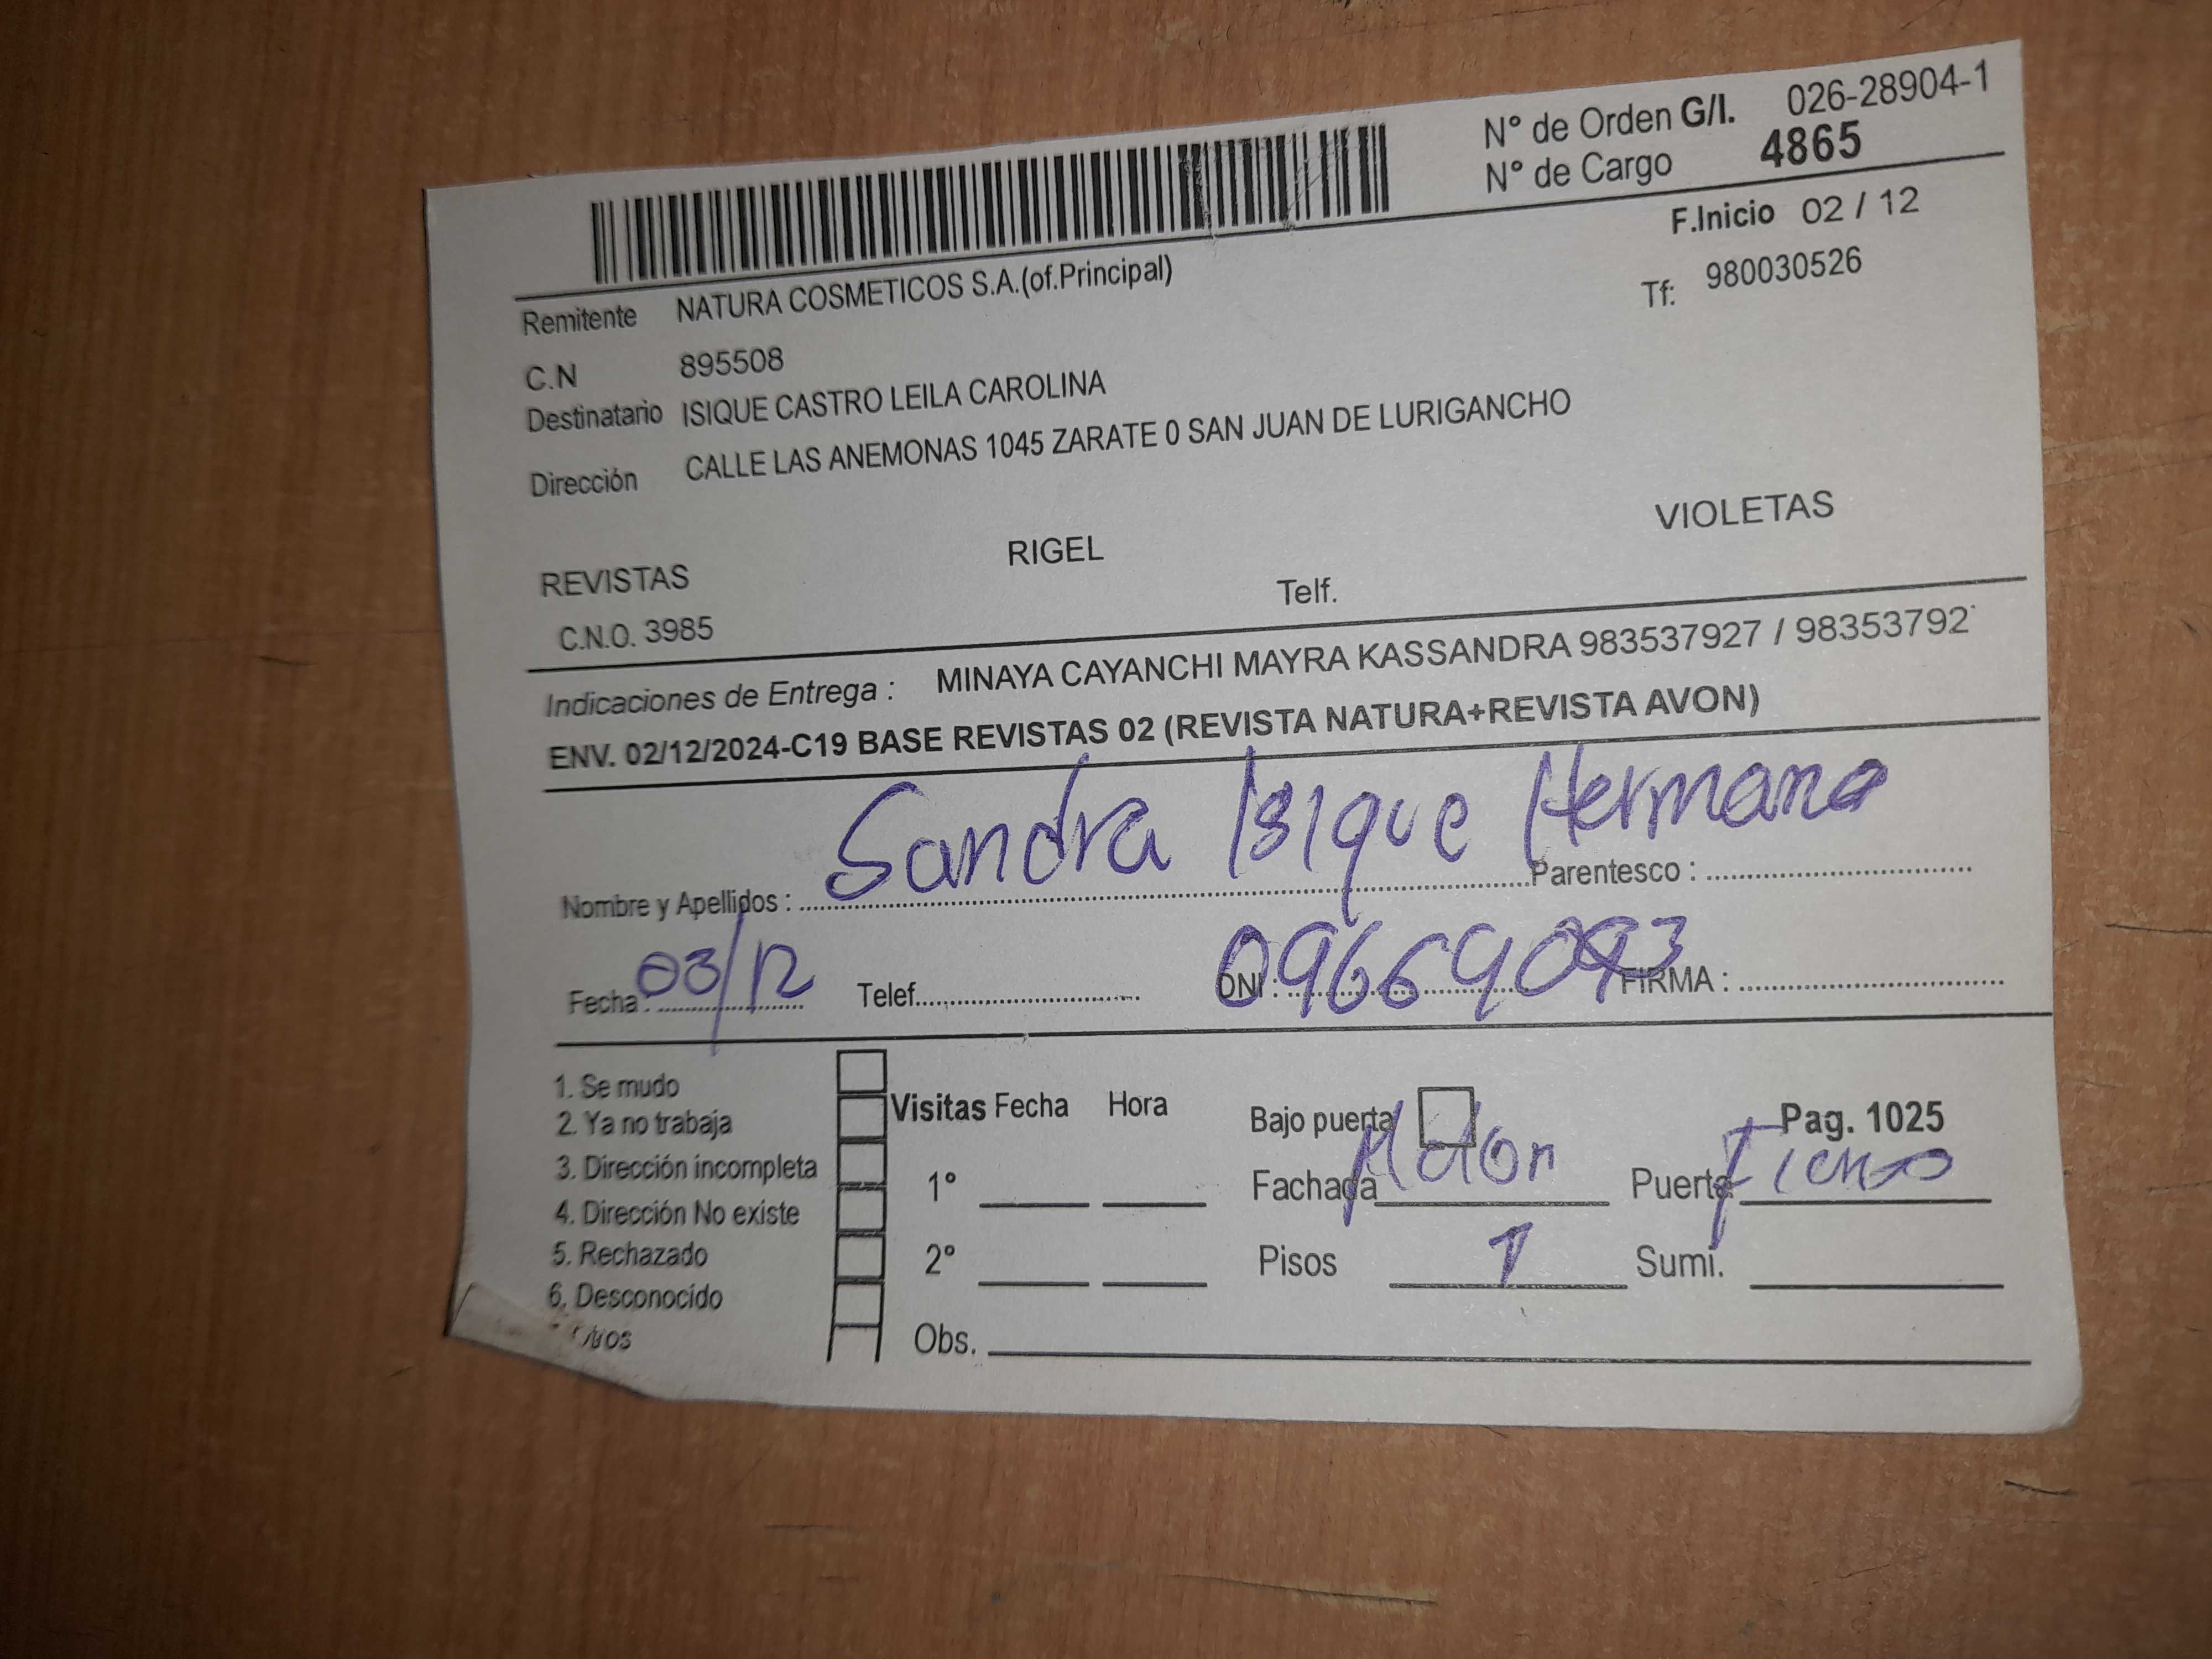 N° de Orden G/I. 026-28904-1
N° de Cargo 4865
F.Inicio 02 / 12
Remitente NATURA COSMETICOS S.A.(of.Principal)
Tf: 980030526
C.N 895508
Destinatario ISIQUE CASTRO LEILA CAROLINA
Dirección CALLE LAS ANEMONAS 1045 ZARATE 0 SAN JUAN DE LURIGANCHO
REVISTAS RIGEL VIOLETAS
C.N.O. 3985 Telf.
Indicaciones de Entrega : MINAYA CAYANCHI MAYRA KASSANDRA 983537927 / 98353792
ENV. 02/12/2024-C19 BASE REVISTAS 02 (REVISTA NATURA+REVISTA AVON)
Sandra Isique Hermana
Nombre y Apellidos : Parentesco :
Fecha : 03/12 Telef. DNI : FIRMA :
1. Se mudo
2. Ya no trabaja
3. Dirección incompleta
4. Dirección No existe
5. Rechazado
6. Desconocido
Visitas Fecha Hora
1°
2°
Obs.
Bajo puerta Pag. 1025
Fachada Puerta
Pisos 1 Sumi.